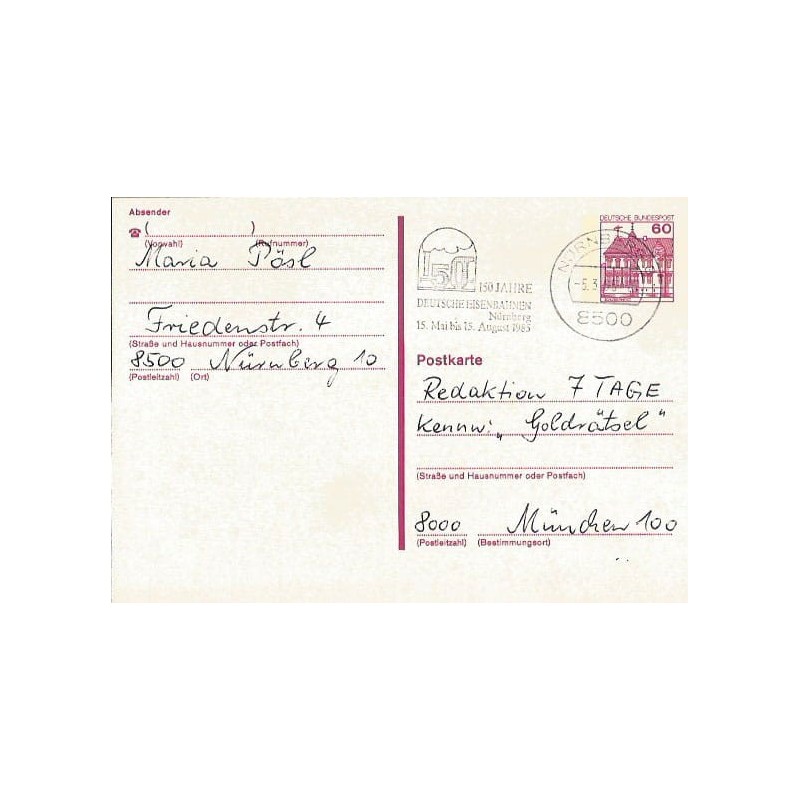 Absender
☎ ( )
(Vorwahl) (Rufnummer)
Maria Pösl
Friedenstr. 4
(Straße und Hausnummer oder Postfach)
8500 Nürnberg 10
(Postleitzahl) (Ort)
150 JAHRE
DEUTSCHE EISENBAHNEN
Nürnberg
15. Mai bis 15. August 1985
8500
DEUTSCHE BUNDESPOST
60
Postkarte
Redaktion 7 TAGE
Kennw.: „Goldrätsel"
(Straße und Hausnummer oder Postfach)
8000 München 100
(Postleitzahl) (Bestimmungsort)